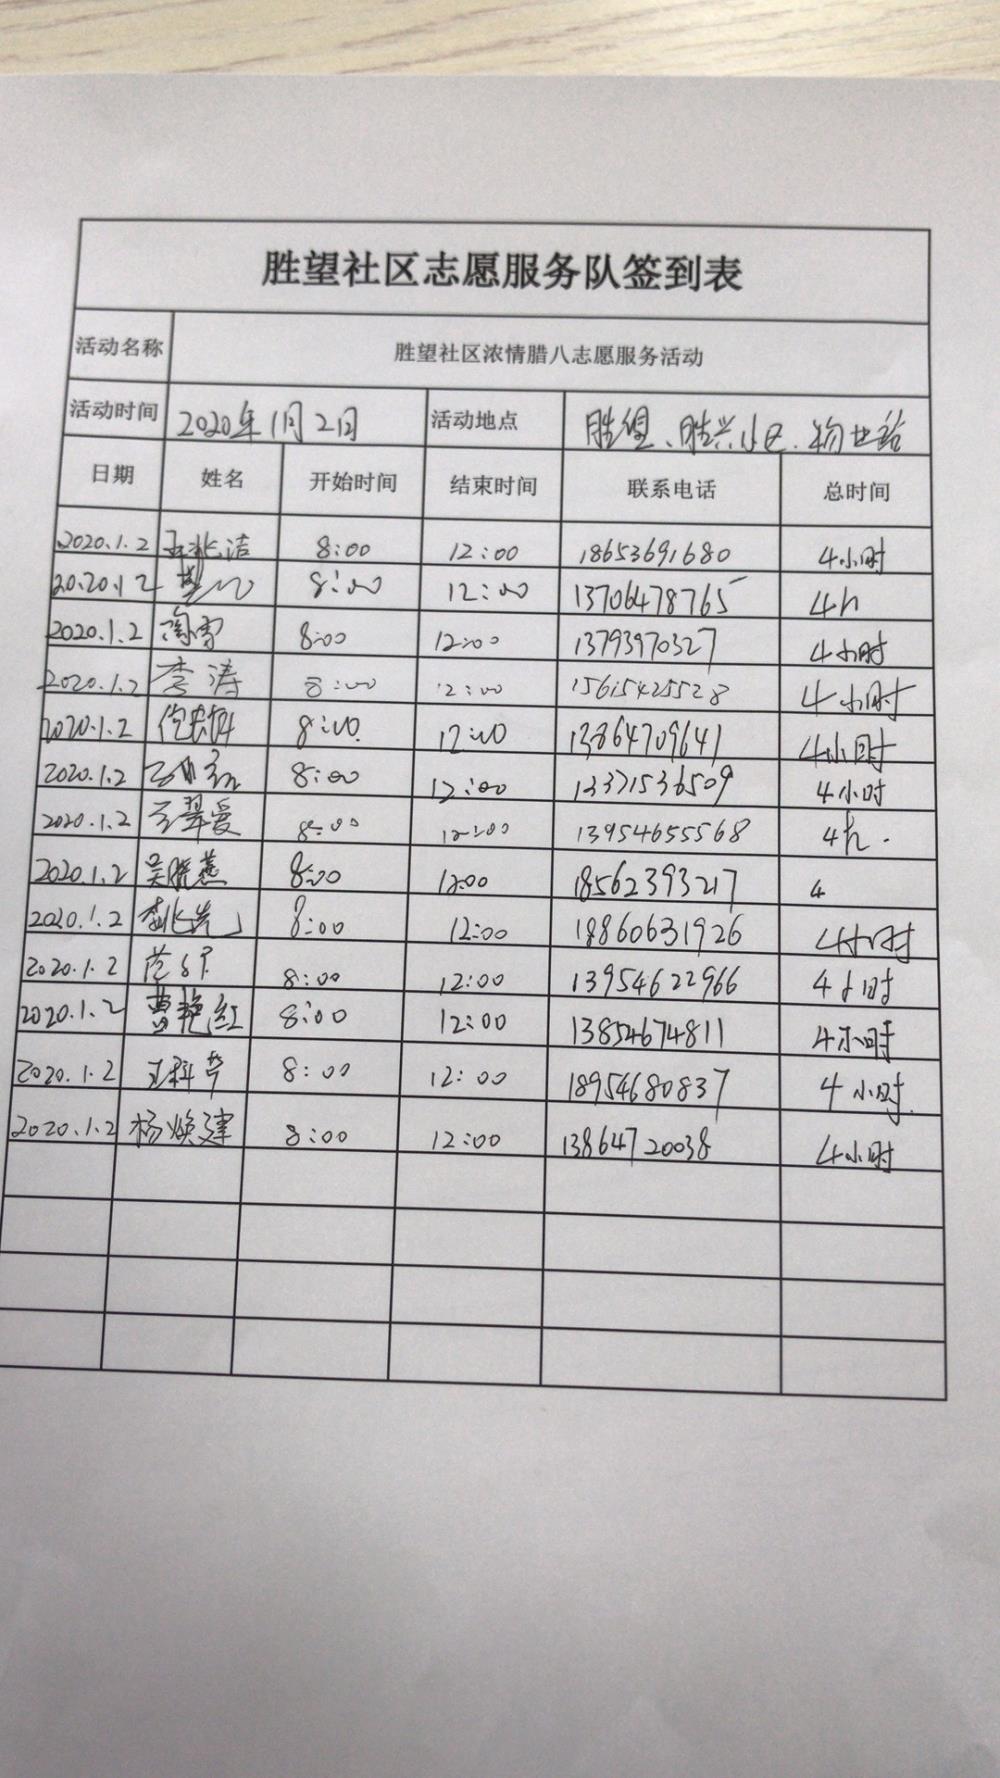 胜望社区志愿服务队签到表
活动名称 胜望社区浓情腊八志愿服务活动
活动时间 2020年1月2日 活动地点 胜望、胜兴小区、物业站
日期 姓名 开始时间 结束时间 联系电话 总时间
2020.1.2 8:00 12:00 18653691680 4小时
2020.1.2 8:00 12:00 13706478765 4h
2020.1.2 陶雪 8:00 12:00 13793970327 4小时
2020.1.2 李涛 8:00 12:00 15615425528 4小时
2020.1.2 8:00 12:00 13864709641 4小时
2020.1.2 8:00 12:00 13371536509 4小时
2020.1.2 王翠爱 8:00 12:00 13954655568 4h.
2020.1.2 吴晓燕 8:00 12:00 18562393217 4
2020.1.2 8:00 12:00 18860631926 4小时
2020.1.2 8:00 12:00 13954622966 4小时
2020.1.2 曹艳红 8:00 12:00 13854674811 4小时
2020.1.2 8:00 12:00 18954680837 4小时
2020.1.2 杨焕建 8:00 12:00 13864720038 4小时